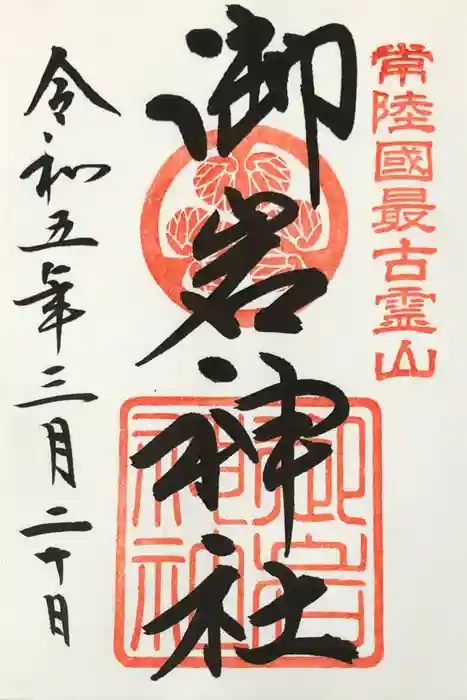 常陸國最古霊山
御岩神社
令和五年三月二十日
御岩神社